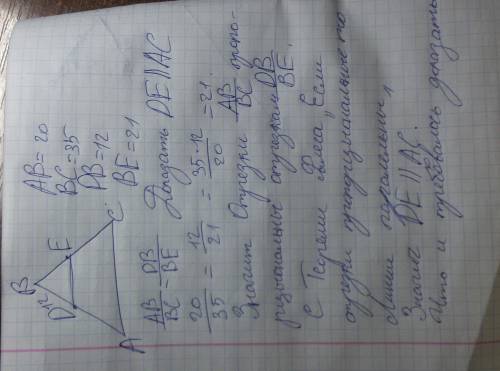 B
D
E
A
C
12
AB = 20
BC = 35
DB = 12
BE = 21
AB/BC = DB/BE Доказать DE || AC
20/35 = 12/21 = 35·12/20 = 21.
Значит Отрезки AB/BC пропо-
рциональны отрезкам DB/BE.
С Теоремы Фалеса „Если
отрезки пропорциональные то
линии параллельны„
Значит DE || AC.
Что и требовалось доказать